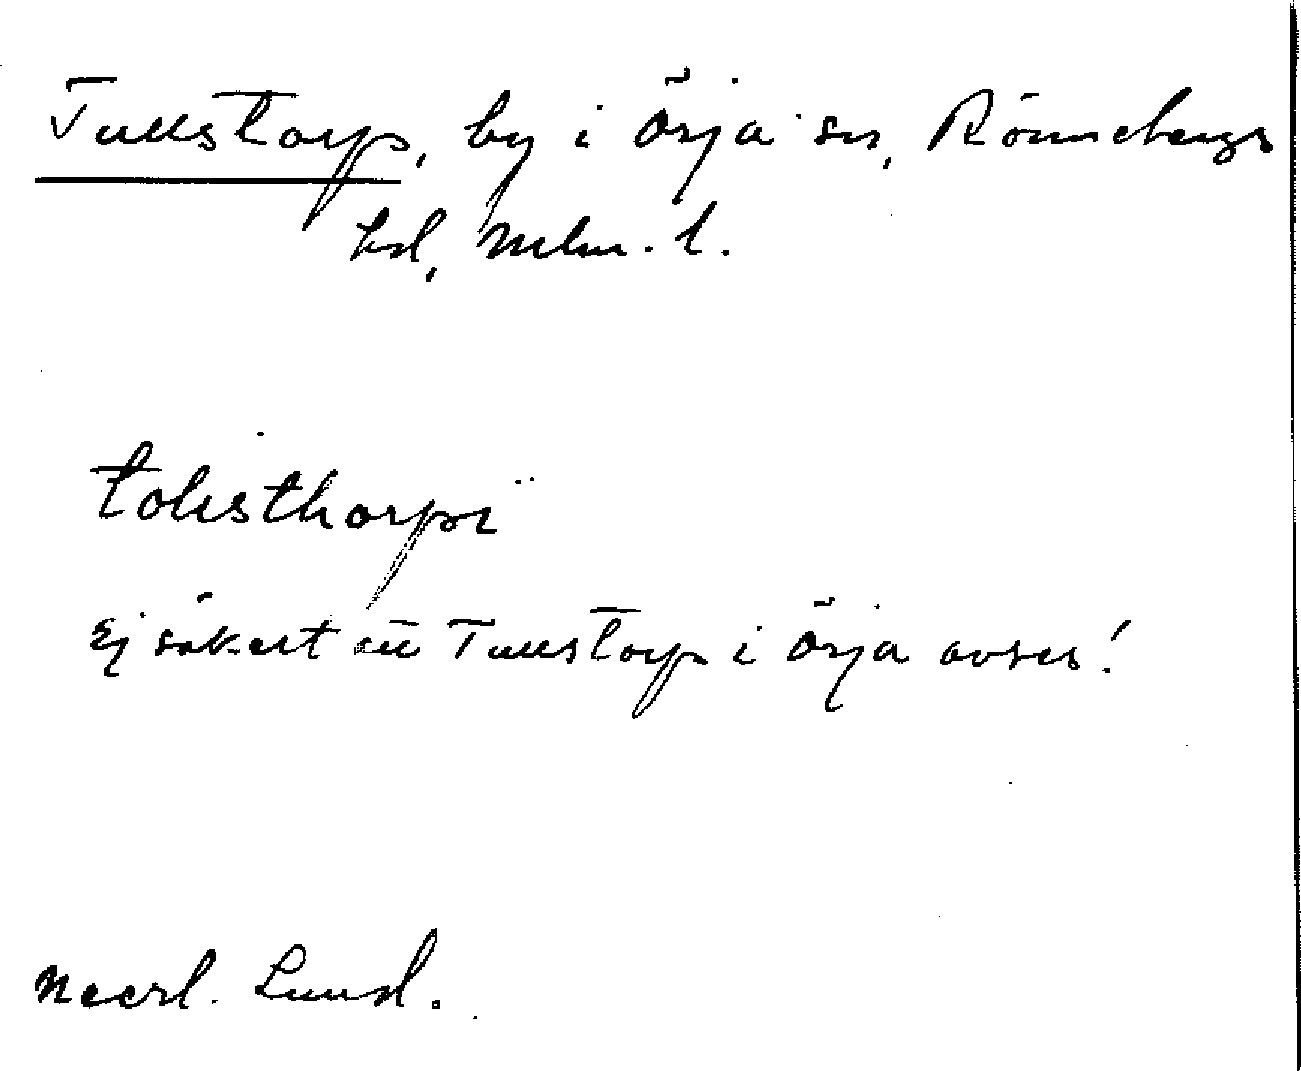 Tullstorp, by i Örja sn, Rönnebergs
hd, Mlm. l.
tolisthorpi
Ej säkert att Tullstorp i Örja avses!
Necrl. Lund.